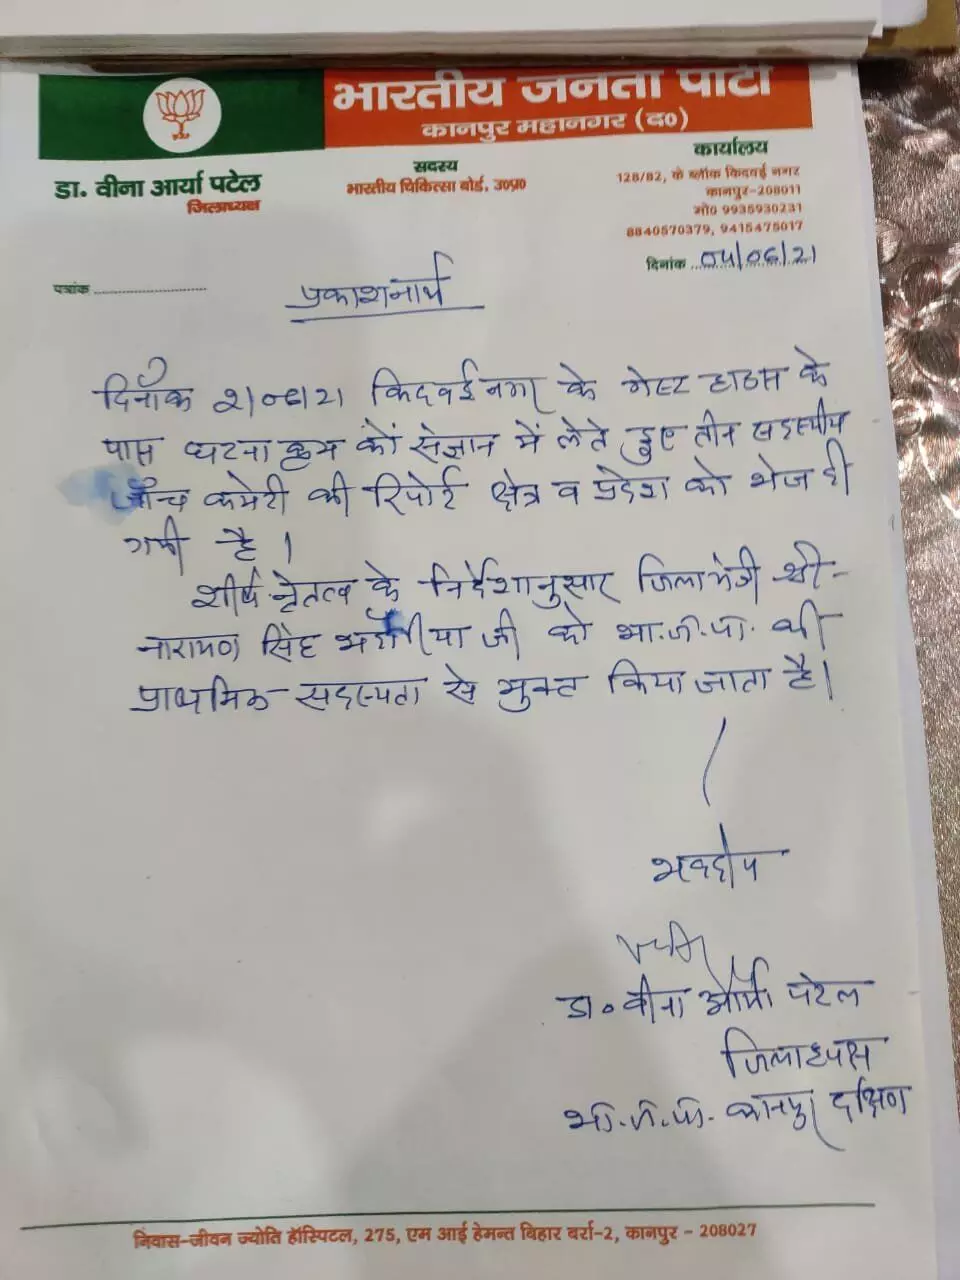 भारतीय जनता पार्टी
कानपुर महानगर (द०)
डा. वीना आर्या पटेल
जिलाध्यक्ष
सदस्य
भारतीय चिकित्सा बोर्ड, उ०प्र०
कार्यालय
128/82, के ब्लॉक किदवई नगर
कानपुर-208011
मो० 9935930231
8840570379, 9415475017
दिनांक 04/06/21
पत्रांक
प्रकाशनार्थ
दिनाँक 2/06/21 किदवई नगर के गेस्ट हाउस के
पास घटना क्रम को संज्ञान में लेते हुए तीन सदस्यीय
जाँच कमेटी की रिपोर्ट क्षेत्र व प्रदेश को भेज दी
गयी है।
शीर्ष नेतत्व के निर्देशानुसार जिलामंत्री श्री-
नारायण सिंह भदौरीया जी को भा.ज.पा. की
प्राथमिक सदस्यता से मुक्त किया जाता है।
भवदीय
डा० वीना आर्या पटेल
जिलाध्यक्ष
भा.ज.पा. कानपुर दक्षिण
निवास-जीवन ज्योति हॉस्पिटल, 275, एम आई हेमन्त बिहार बर्रा-2, कानपुर - 208027